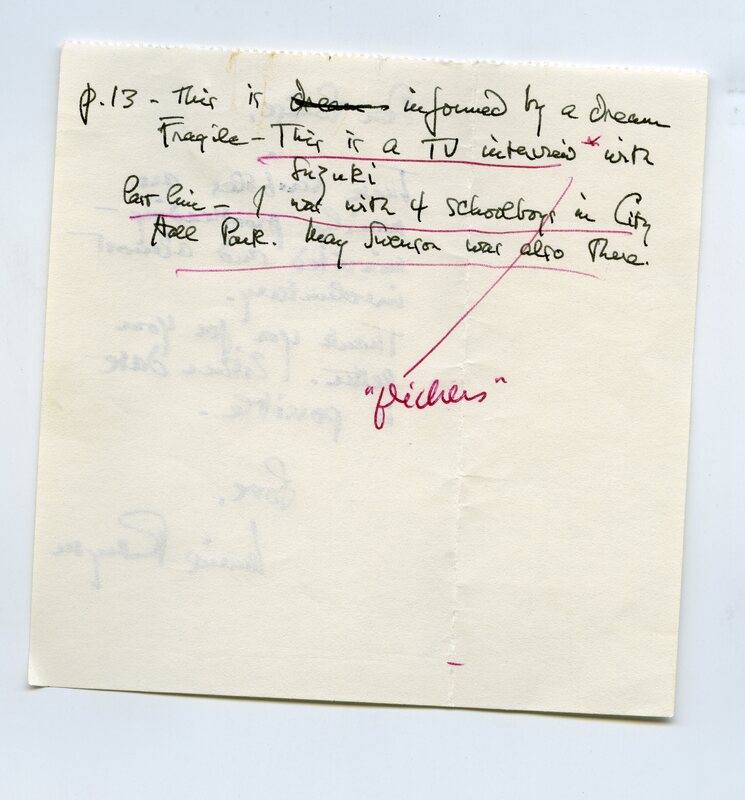 p.13 - This is dream informed by a dream
Fragile - This is a TV interview * with
Suzuki
last line - I was with 4 schoolboys in City
Hall Park. May Swenson was also there.
"flickers"